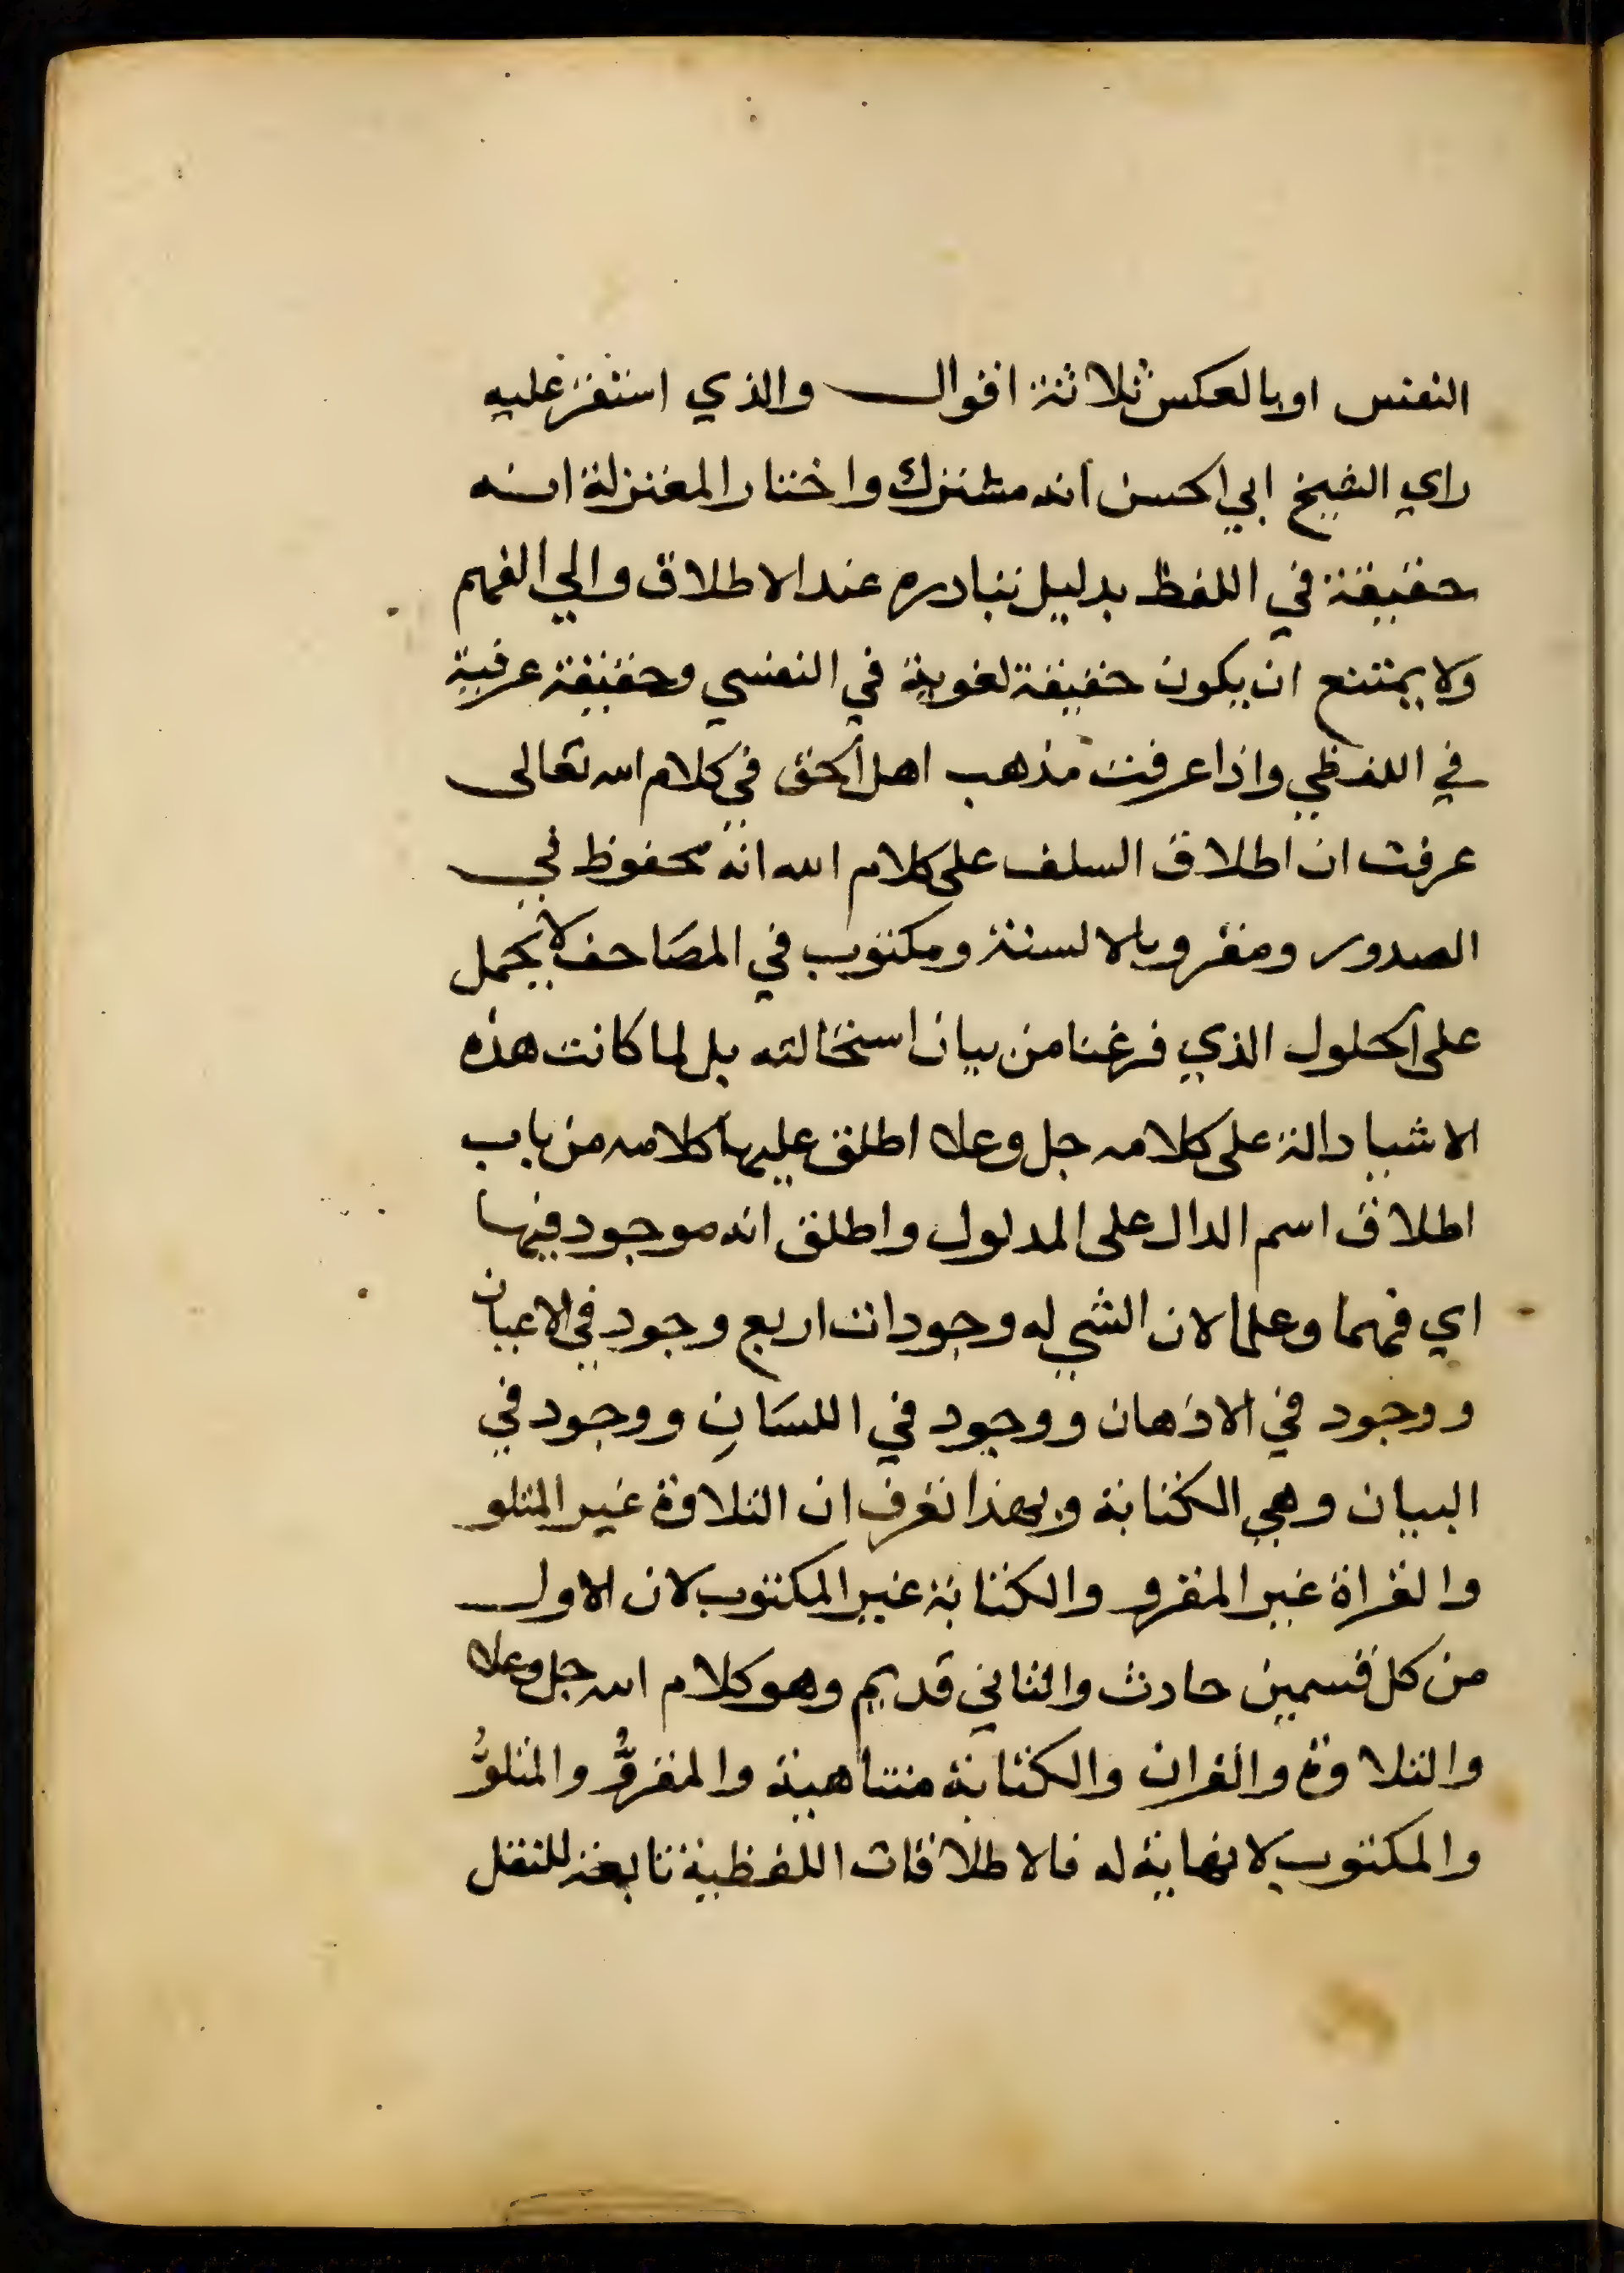 النفس او بالعكس ثلاثة اقوال والذي استقر عليه
راي الشيخ ابي الحسن انه مشترك واختار المعتزلة انه
حقيقة في اللفظ بدليل تبادره عند الاطلاق والي الفهم
ولا يمتنع ان يكون حقيقة لغوية في النفسي وحقيقة عرفية
في اللفظي واذا عرفت مذهب اهل الحق في كلام الله تعالى
عرفت ان اطلاق السلف على كلام الله انه محفوظ في
الصدور ومقرو بالالسنة ومكتوب في المصاحف لا يحمل
على الحلول الذي فرغنا من بيان استحالته بل لما كانت هذه
الاشيا دالة على كلامه جل وعلا اطلق عليها كلامه من باب
اطلاق اسم الدال على المدلول واطلق انه موجود فيها
اي فهما وعلما لان الشي له وجودات اربع وجود في الاعيان
ووجود في الاذهان ووجود في اللسان ووجود في
البيان وهي الكتابة وبهذا تعرف ان التلاوة غير المتلو
والقراة غير المقرو والكتابة غير المكتوب لان الاول
من كل قسمين حادث والثاني قديم وهو كلام الله جل وعلا
والتلاوة والقران والكتابة متناهية والمقروُّ والمتلوُّ
والمكتوب لا نهاية له فالاطلاقات اللفظية تابعة للنقل